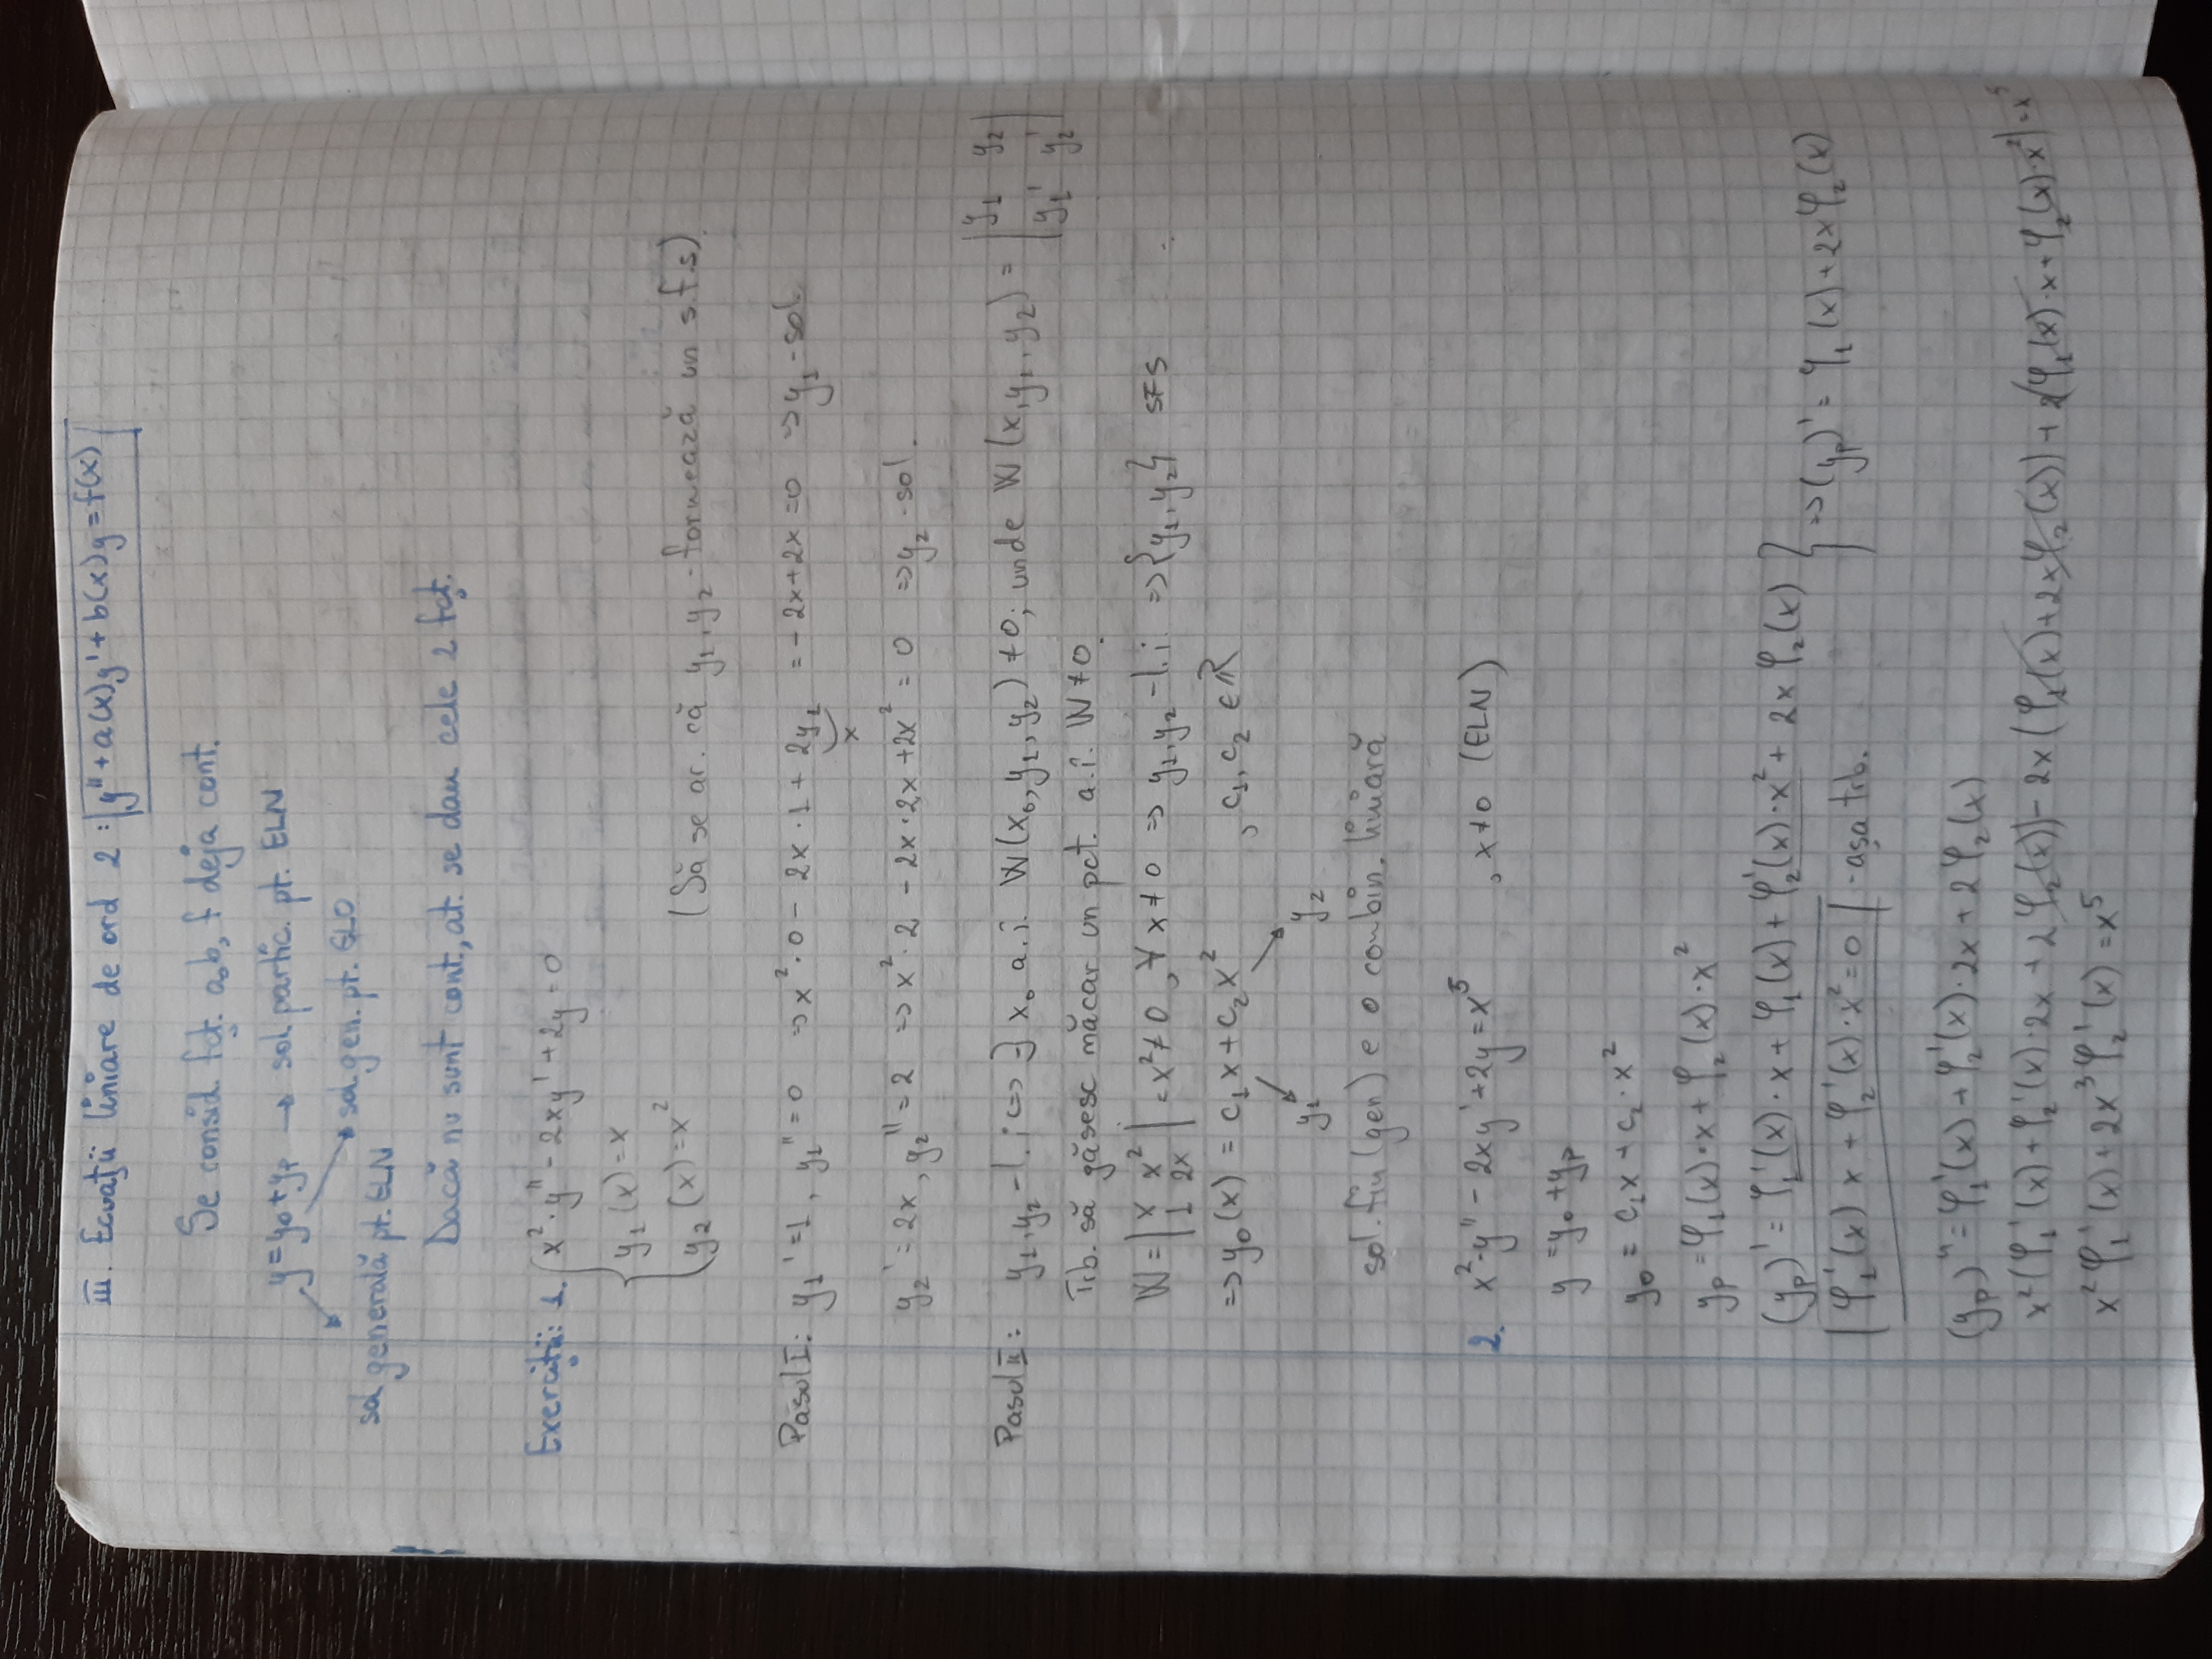 III. Ecuații liniare de ord 2 : y'' + a(x)y' + b(x)y = f(x)
Se consid. fcț. a, b, f deja cont.
y = y₀ + yₚ → sol. partic. pt. ELN
sol. gen. pt. ELO
sol generală pt. ELN
Dacă nu sunt cont., at. se dau cele 2 fcț.
Exerciții: 1. { x²·y'' - 2xy' + 2y = 0
y₁(x) = x
y₂(x) = x²
(Să se ar. că y₁, y₂ formează un s.f.s)
Pasul I: y₁' = 1, y₁'' = 0 => x²·0 - 2x·1 + 2y₁ = -2x+2x = 0 => y₁ - sol.
x
y₂' = 2x, y₂'' = 2 => x²·2 - 2x·2x + 2x² = 0 => y₂ - sol.
Pasul II: y₁, y₂ - l.i <=> ∃ x₀ a.î. W(x₀, y₁, y₂) ≠ 0; unde W(x, y₁, y₂) = | y₁ y₂ |
| y₁' y₂' |
Trb. să găsesc măcar un pct. a.î. W ≠ 0.
W = | x x² | = x² ≠ 0, ∀ x ≠ 0 => y₁, y₂ - l.i. => {y₁, y₂} SFS
| 1 2x |
=> y₀(x) = c₁x + c₂x² , c₁, c₂ ∈ ℝ
y₁ y₂
sol. fin (gen) e o combin. liniară
2. x²·y'' - 2xy' + 2y = x⁵ , x ≠ 0 (ELN)
y = y₀ + yₚ
y₀ = c₁x + c₂·x²
yₚ = φ₁(x)·x + φ₂(x)·x²
(yₚ)' = φ₁'(x)·x + φ₁(x) + φ₂'(x)·x² + 2xφ₂(x) } => (yₚ)' = φ₁(x) + 2xφ₂(x)
φ₁'(x) x + φ₂'(x)·x² = 0 - așa trb.
(yₚ)'' = φ₁'(x) + φ₂'(x)·2x + 2φ₂(x)
x²(φ₁'(x) + φ₂'(x)·2x + 2φ₂(x)) - 2x(φ₁(x) + 2xφ₂(x)) + 2(φ₁(x)·x + φ₂(x)·x²) = x⁵
x²φ₁'(x) + 2x³φ₂'(x) = x⁵